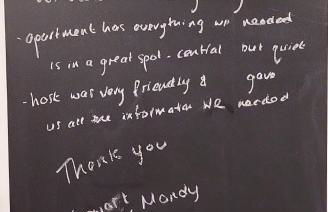 - apartment has everything we needed
is in a great spot - central but quiet
- host was very friendly & gave
us all the informaton we needed
Thank you
Mandy